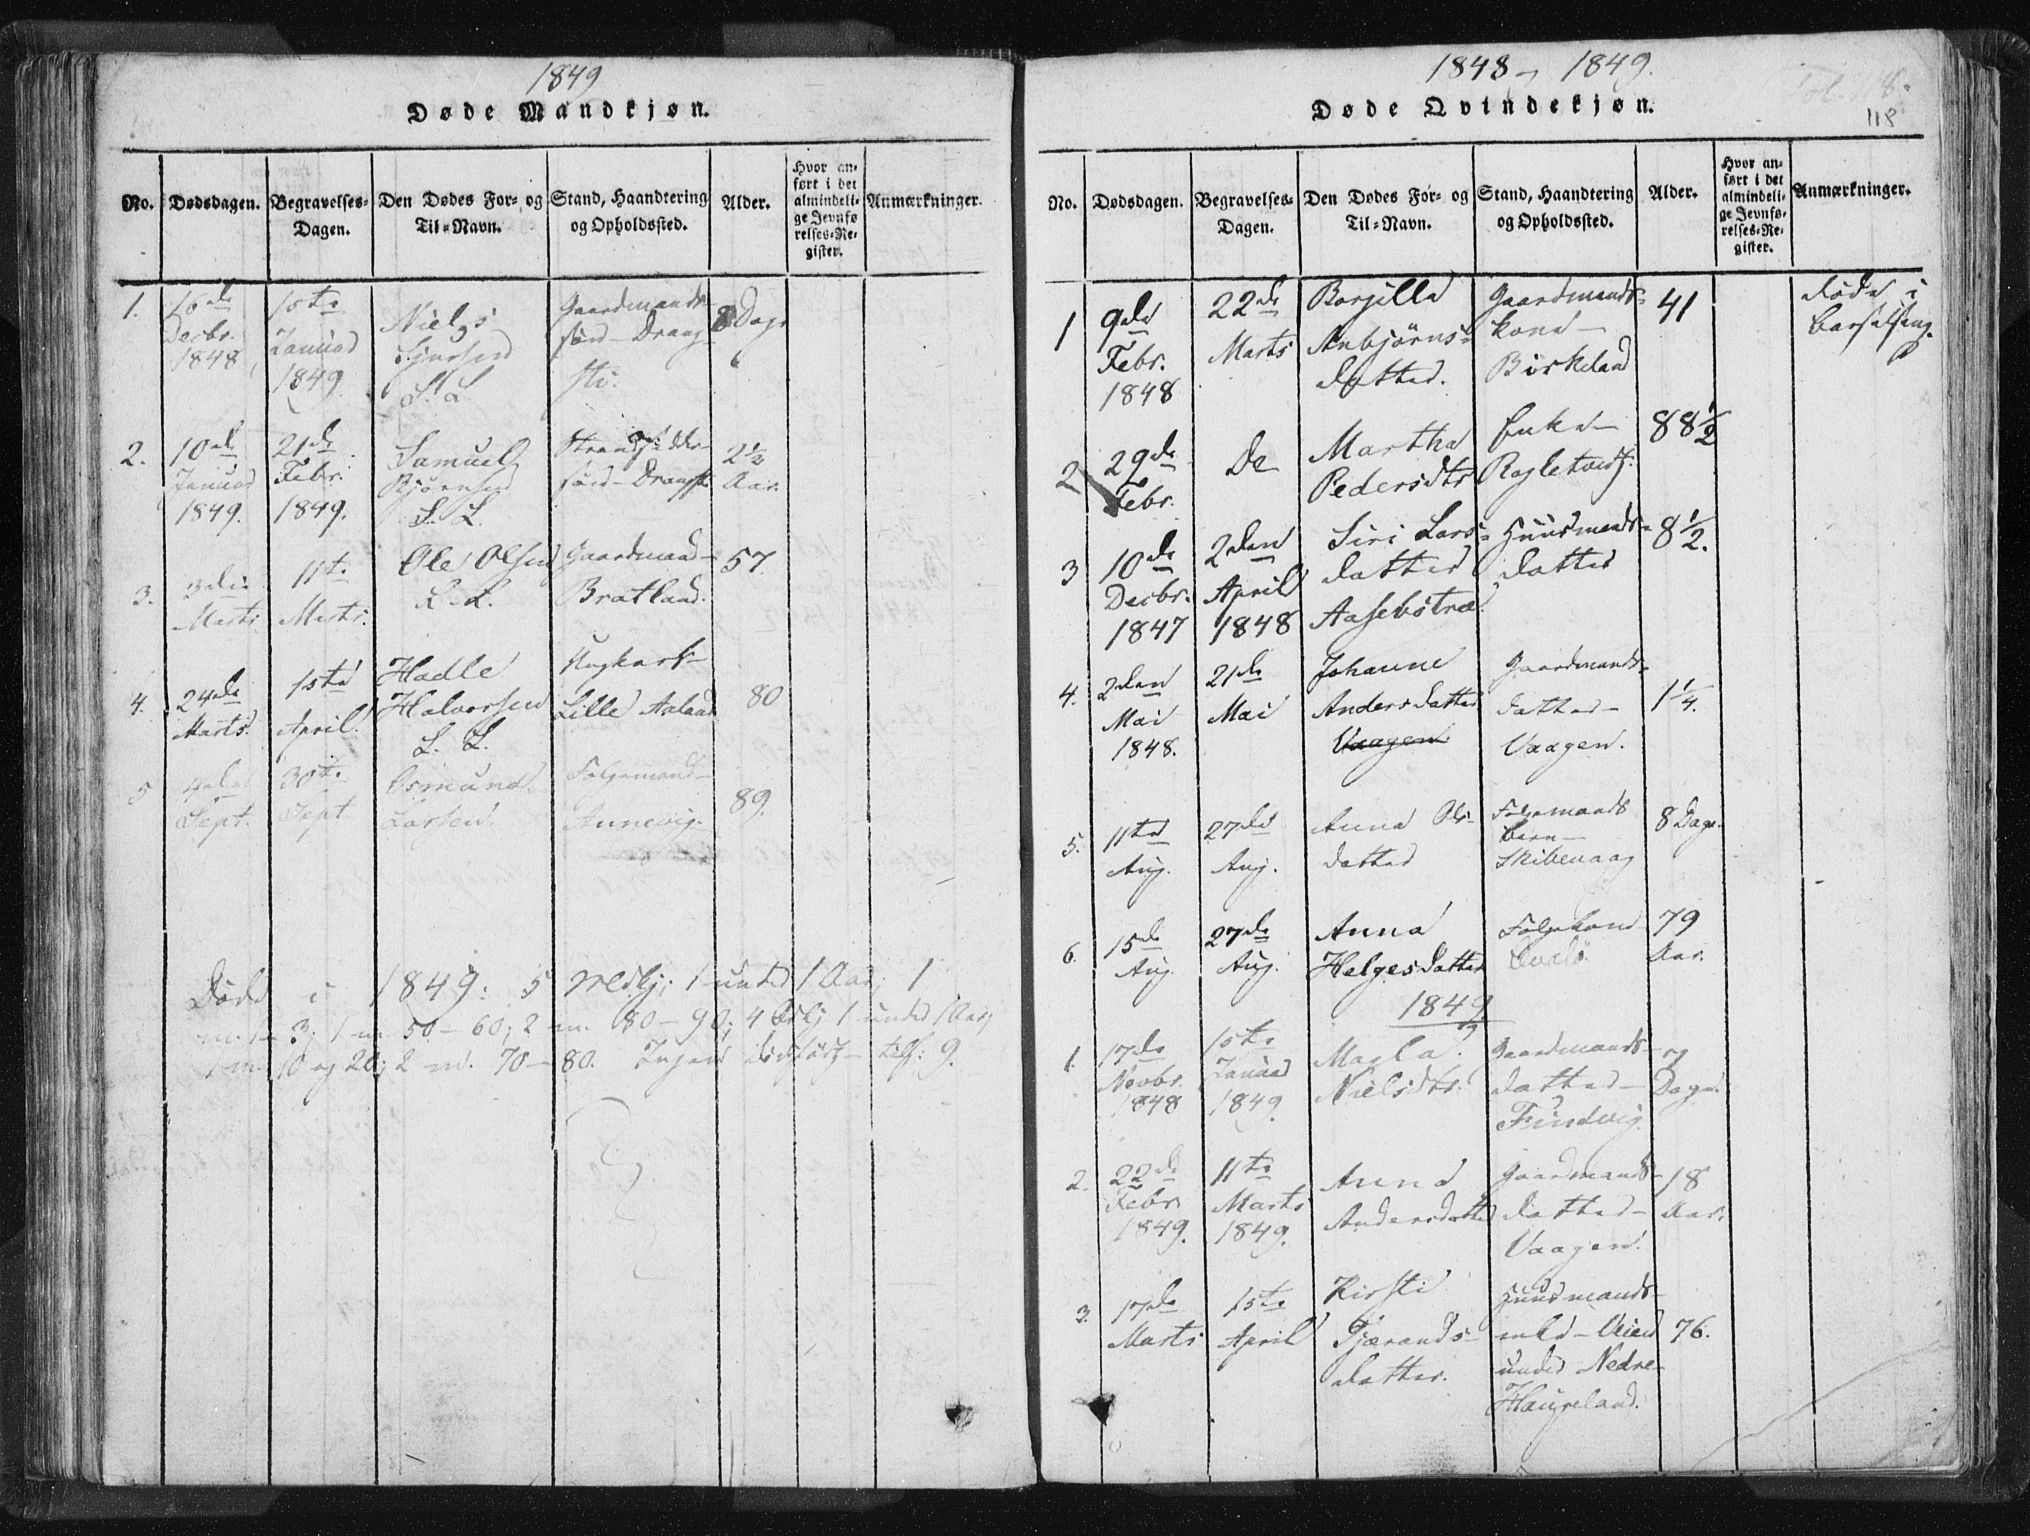 1849
Døde Mandkjøn.
No. Dødsdagen. Begravelses-Dagen. Den Dødes For- og Til-Navn. Stand, Haandtering og Opholdssted. Alder. Hvor anført i det almindelige Jevnførelses-Register. Anmærkninger.
1. 16de Decbr. 1848, 15te Januar 1849 Niels Sjursen S. L. Gaardmands søn – 8 Dage
2. 10de Januar 1849. 21de Febr. 1849. Samuel Bjørnsen S. L. Strandsidder søn – 2½ Aar.
3. 3die Marts. 11te Marts. Ole Olsen L. L. Gaardmand – Bratland. 57
4. 24de Marts. 15te April. Hadle Halvorsen L. L. Ungkarl – Lille Aaland 80
5 4de Sept. 30te Sept Osmund Larsen. Følgemand – Annevig. 89.
Døde i 1849: 5 Mdkj; 1 under 1 Aar, 1
m. 1 – 3; 1 m. 50 – 60; 2 m. 80 – 90; 4 Qvkj 1 under 1 Aar,
1 m. 10 og 20; 2 m. 70 – 80. Ingen tils: 9.
1848 – 1849.
Døde Qvindekjøn.
Fol. 118.
118
No. Dødsdagen. Begravelses-Dagen. Den Dødes For- og Til-Navn. Stand, Haandtering og Opholdssted. Alder. Hvor anført i det almindelige Jevnførelses-Register. Anmærkninger.
1 9de Febr. 1848 22de Marts Borgilla Anbjørns-datter. Gaardmands-kone – Birkeland 41 døde i barselseng.
2 29de Febr. De Martha Pedersdtr Enke – 88½
3 10de Decbr. 1847 2den April 1848 Siri Lars-datter Huusmands-datter 8½.
4. 2den Mai 1848. 21de Mai Johanne Andersdatter Vaagen Gaardmands-datter – Vaagen. 1¼.
5. 11te Aug. 27de Aug. Anna Ols-datter Følgemands barn – Skibevaag 8 Dage.
6. 15de Aug. 27de Aug. Anna Helgesdatter Følgekone 79 Aar.
1849
1. 17de Novbr. 1848 15te Januar 1849 Magla Nielsdtr. Gaardmands-datter – Findvig. Dage.
2. 22de Febr. 1849. 11te Marts 1849. Anna Andersdatter Gaardmands-datter – Vaagen. 18 Aar.
3. 17de Marts 15te April Kirsti Tjærands-datter. Huusmands-enke – under Nedre-Haugeland. 76.